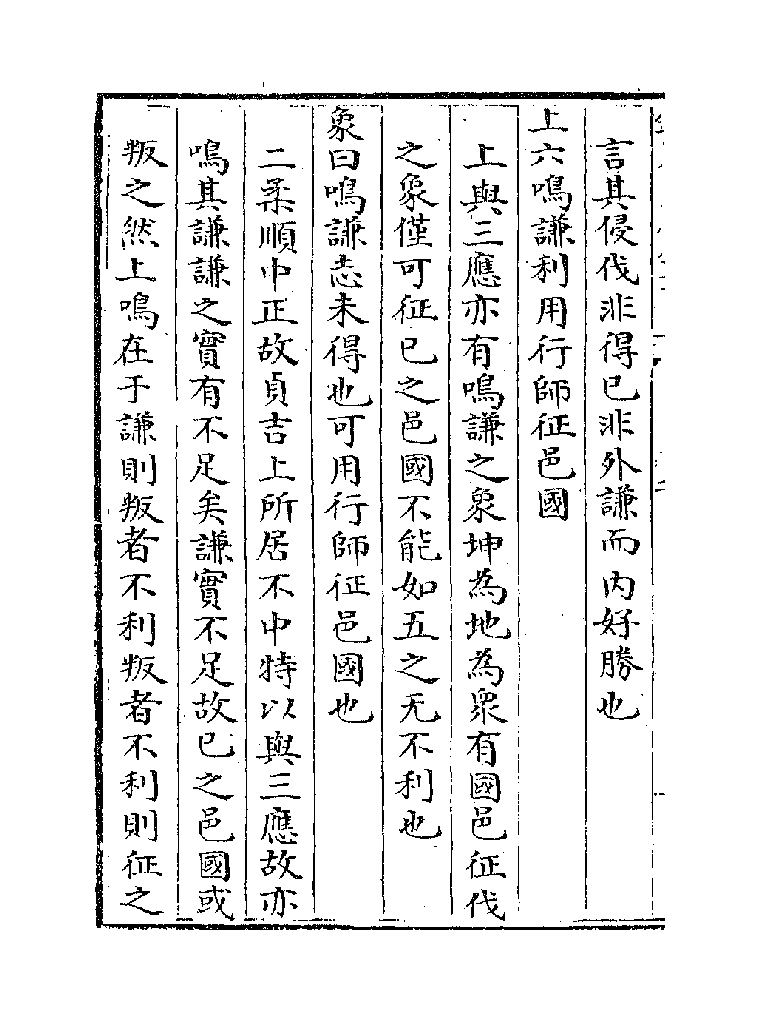 言其侵伐非得已非外謙而内好勝也
上六鳴謙利用行師征邑國
上與三應亦有鳴謙之象坤為地為衆有國邑征伐
之象僅可征已之邑國不能如五之无不利也
象曰鳴謙志未得也可用行師征邑國也
二柔順中正故貞吉上所居不中特以與三應故亦
鳴其謙謙之實有不足矣謙實不足故已之邑國或
叛之然上鳴在于謙則叛者不利叛者不利則征之